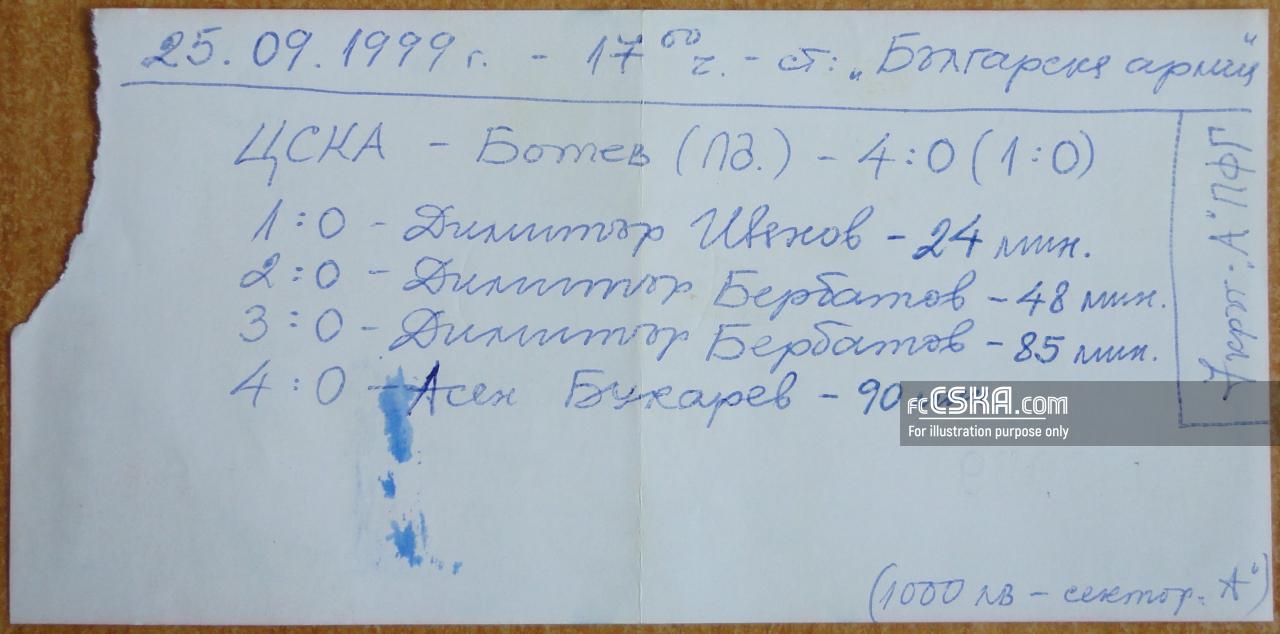 25.09.1999 г. - 17 00 ч. - ст: „Българска армия“
ЦСКА - Ботев (Пд.) - 4:0 (1:0)
1:0 - Димитър Иванов - 24 мин.
2:0 - Димитър Бербатов - 48 мин.
3:0 - Димитър Бербатов - 85 мин.
4:0 - Асен Букарев - 90
"А" ПФГ
fcCSKA.com
For illustration purpose only
(1000 лв - сектор "А")